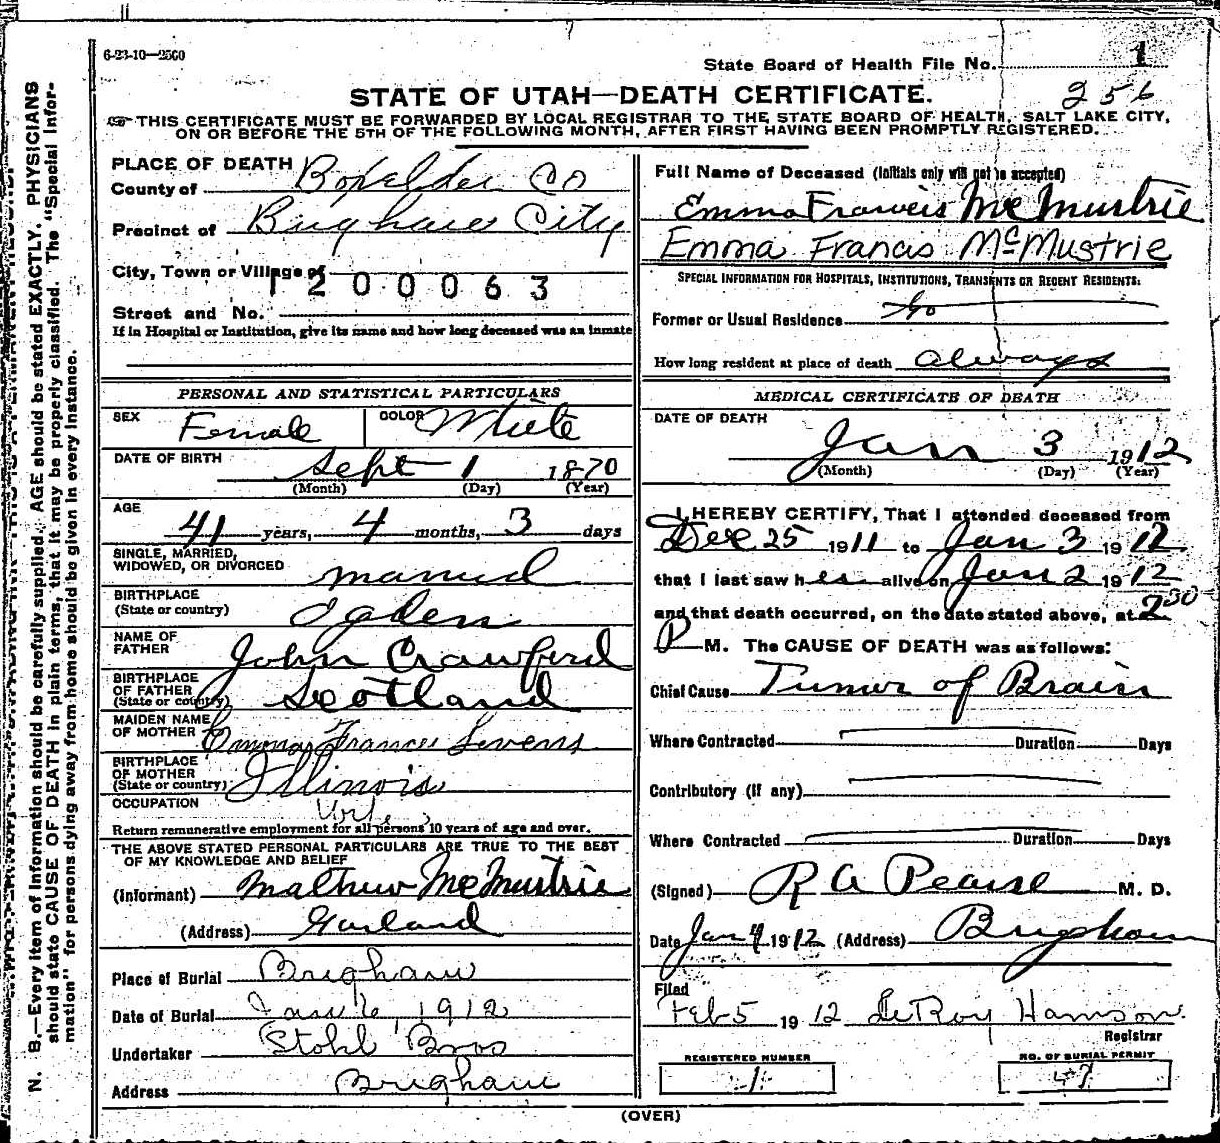 6-23-10—2500
State Board of Health File No. 1
256
STATE OF UTAH—DEATH CERTIFICATE.
THIS CERTIFICATE MUST BE FORWARDED BY LOCAL REGISTRAR TO THE STATE BOARD OF HEALTH, SALT LAKE CITY,
ON OR BEFORE THE 5TH OF THE FOLLOWING MONTH, AFTER FIRST HAVING BEEN PROMPTLY REGISTERED.
N. B.—Every item of information should be carefully supplied. AGE should be stated EXACTLY. PHYSICIANS
should state CAUSE OF DEATH in plain terms, that it may be properly classified. The "Special Infor-
mation" for persons dying away from home should be given in every instance.
PLACE OF DEATH
County of Boxelder Co
Precinct of Brigham City
City, Town or Village of
1200063
Street and No.
If in Hospital or Institution, give its name and how long deceased was an inmate
PERSONAL AND STATISTICAL PARTICULARS
SEX Female COLOR White
DATE OF BIRTH Sept 1 1870
(Month) (Day) (Year)
AGE 41 years, 4 months, 3 days
SINGLE, MARRIED,
WIDOWED, OR DIVORCED married
BIRTHPLACE
(State or country) Ogden
NAME OF
FATHER John Crawford
BIRTHPLACE
OF FATHER
(State or country) Scotland
MAIDEN NAME
OF MOTHER Emma Frances
BIRTHPLACE
OF MOTHER
(State or country) Illinois
OCCUPATION
Return remunerative employment for all persons 10 years of age and over.
THE ABOVE STATED PERSONAL PARTICULARS ARE TRUE TO THE BEST
OF MY KNOWLEDGE AND BELIEF
(Informant) Mathew McMustrie
(Address) Garland
Place of Burial Brigham
Date of Burial Jan 6, 1912
Undertaker Stohl Bros
Address Brigham
Full Name of Deceased (Initials only will not be accepted)
Emma Francis McMustrie
Emma Francis McMustrie
SPECIAL INFORMATION FOR HOSPITALS, INSTITUTIONS, TRANSIENTS OR RECENT RESIDENTS:
Former or Usual Residence
How long resident at place of death always
MEDICAL CERTIFICATE OF DEATH
DATE OF DEATH
Jan 3 1912
(Month) (Day) (Year)
I HEREBY CERTIFY, That I attended deceased from
Dec 25 1911 to Jan 3 1912
that I last saw her alive on Jan 2 1912
and that death occurred, on the date stated above, at 2 30
P M. The CAUSE OF DEATH was as follows:
Chief Cause Tumor of Brain
Where Contracted Duration Days
Contributory (if any)
Where Contracted Duration Days
(Signed) R A Pearse M. D.
Date Jan 4 1912 (Address) Brigham
Filed
Feb 5 1912 LeRoy
Registrar
REGISTERED NUMBER
1
NO. OF BURIAL PERMIT
47
(OVER)